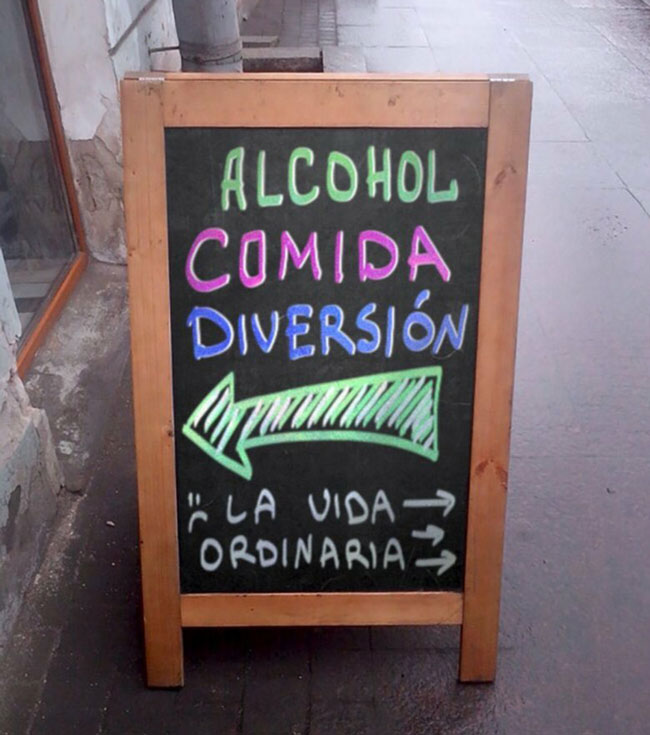 ALCOHOL
COMIDA
DIVERSIÓN
:( LA VIDA →
→
ORDINARIA →